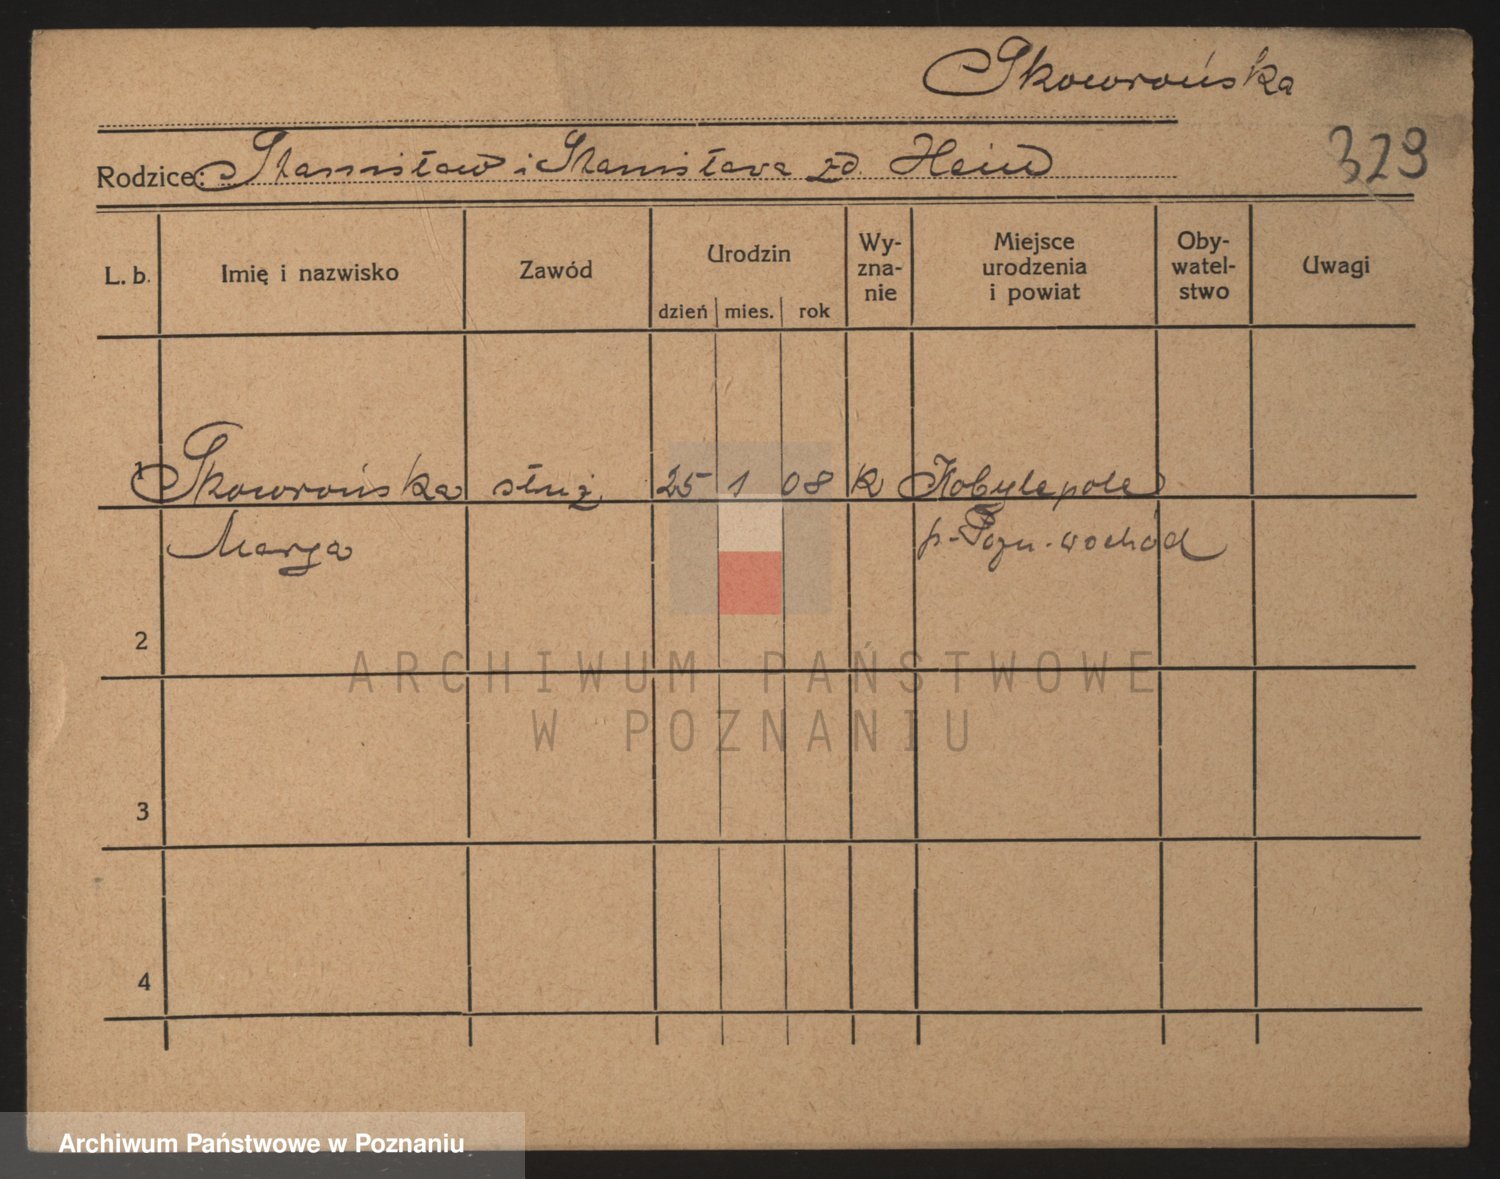 Skowrońska
329
Rodzice: Stanisław i Stanisława zd. Hein
L. b.
Imię i nazwisko
Zawód
Urodzin
dzień mies. rok
Wy-
zna-
nie
Miejsce
urodzenia
i powiat
Oby-
watel-
stwo
Uwagi
1 Skowrońska służ 25 1 08 k Kobylepole
Marja p. Pozn. wschód
2
3
4
ARCHIWUM PAŃSTWOWE
W POZNANIU
Archiwum Państwowe w Poznaniu